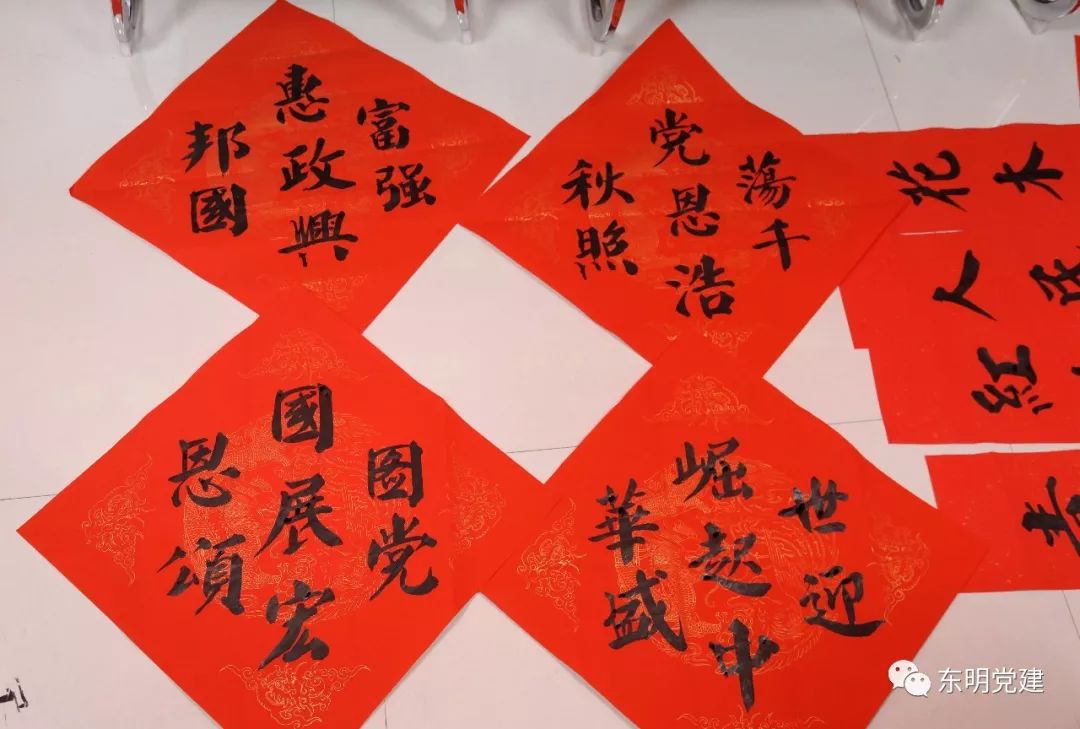 惠政興
邦國
富强
党恩浩
蕩千
秋照
國展宏
圖党
恩頌
崛起中
華盛
世迎
木
花人
紅
东明党建